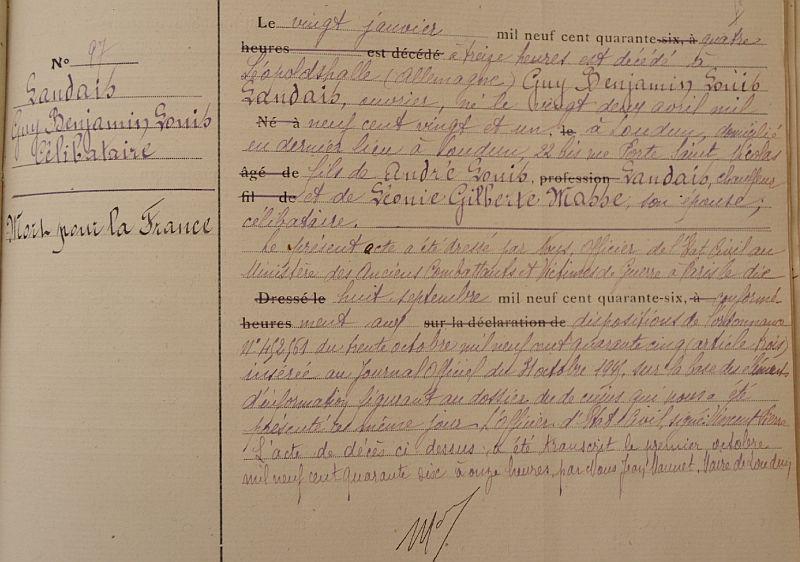 N° 97
Landais
Guy Benjamin Louis
Célibataire
Mort pour la France
Le vingt janvier mil neuf cent quarante-six, à quatre
heures est décédé à treize heures est décédé à
Léopoldshalle (Allemagne) Guy Benjamin Louis
Landais, ouvrier, né le vingt deux avril mil
Né à neuf cent vingt et un, le à Loudun, domicilié
en dernier lieu à Loudun 22 bis rue Porte Saint Nicolas
âgé de fils de André Louis, profession Landais, chauffeur
fil de et de Léonie Gilberte Masse, son épouse;
célibataire.
Le présent acte a été dressé par Nous, Officier de l'Etat Civil au
Ministère des Anciens Combattants et Victimes de Guerre à Paris le dix
Dressé le huit septembre mil neuf cent quarante-six, à conformé
heures ment aux sur la déclaration de dispositions de l'ordonnance
N° 45/2561 du trente octobre mil neuf cent quarante cinq (article trois)
insérée au Journal Officiel du 31 octobre 1945, sur la base des éléments
d'information figurant au dossier du de cujus qui nous a été
présenté ce même jour. L'Officier d'Etat Civil signé: Vincent Pierre
L'acte de décès ci dessus a été transcrit le premier octobre
mil neuf cent quarante six à onze heures, par Nous Maire de Loudun